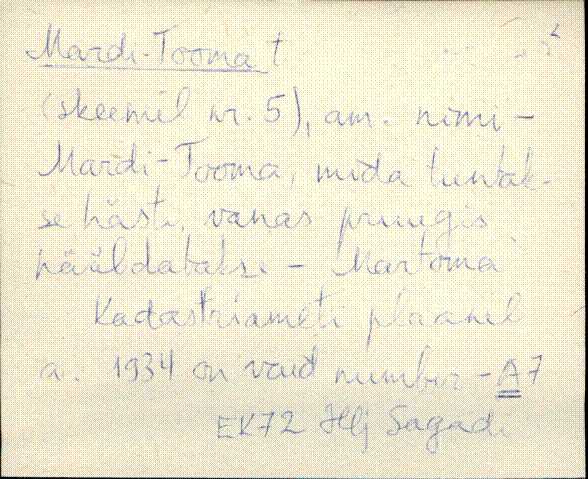 Mardi-Tooma t
(skeemil nr. 5), am. nimi -
Mardi-Tooma, mida tuntak-
se hästi, vanas pruugis
hääldatakse - Martoma
Kadastriameti plaanil
a. 1934 on vaid number - A7
EK72 Hlj Sagadi